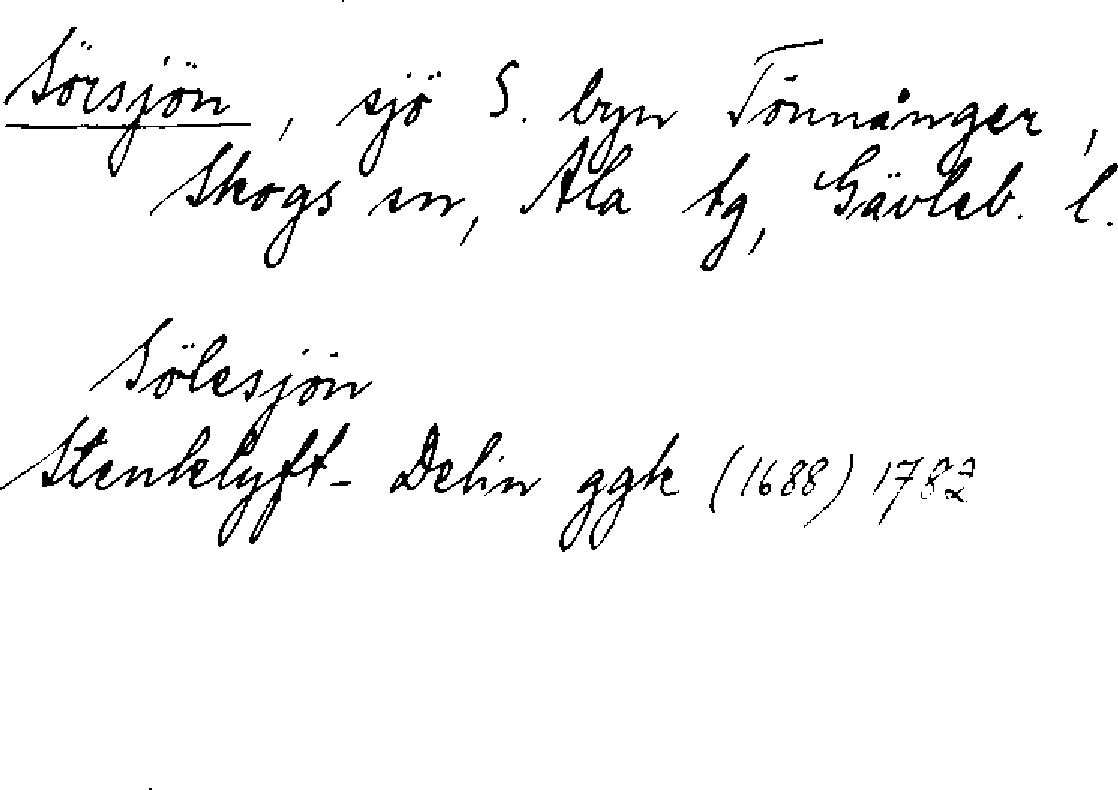 Sörsjön, sjö S. byn Tönnånger,
Skogs sn, Ala tg, Gävleb. l.
Sölesjön
Stenklyft- Delin ggk (1688) 1782